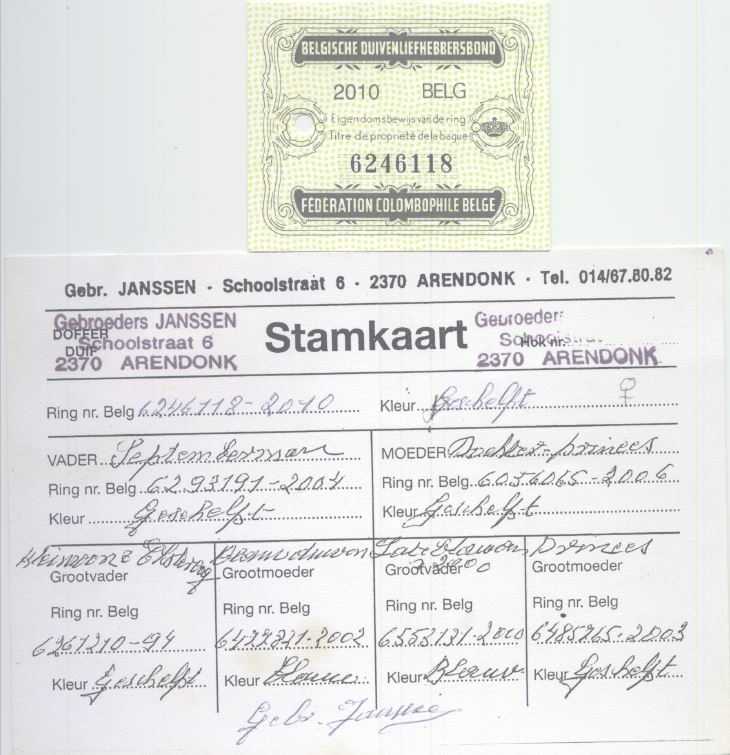 BELGISCHE DUIVENLIEFHEBBERSBOND
2010 BELG
Eigendomsbewijs van de ring
Titre de propriété de la bague
6246118
FÉDÉRATION COLOMBOPHILE BELGE
Gebr. JANSSEN - Schoolstraat 6 - 2370 ARENDONK - Tel. 014/67.80.82
Gebroeders JANSSEN
Schoolstraat 6
2370 ARENDONK
DOFFER
DUIF
Stamkaart
Gebroeders
Hok nr.
2370 ARENDONK
Ring nr. Belg 6246118-2010 Kleur Geschelft ♀
VADER September man
Ring nr. Belg 6293191-2004
Kleur Geschelft
MOEDER Dochter princes
Ring nr. Belg 6056065-2006
Kleur Geschelft
Kleinzoon
Grootvader
Ring nr. Belg
6261210-94
Kleur Geschelft
Grootmoeder
Ring nr. Belg
-2002
Kleur Blauw
2000
Grootvader
Ring nr. Belg
6553131-2000
Kleur Blauw
Princes
Grootmoeder
Ring nr. Belg
6485765-2003
Kleur Geschelft
Gebr. Janssen